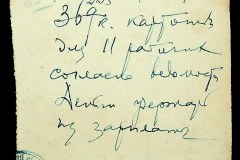 369 к. картошк
для 11 рабочих
согласно ведомость
Деньг удержать
из зарплаты